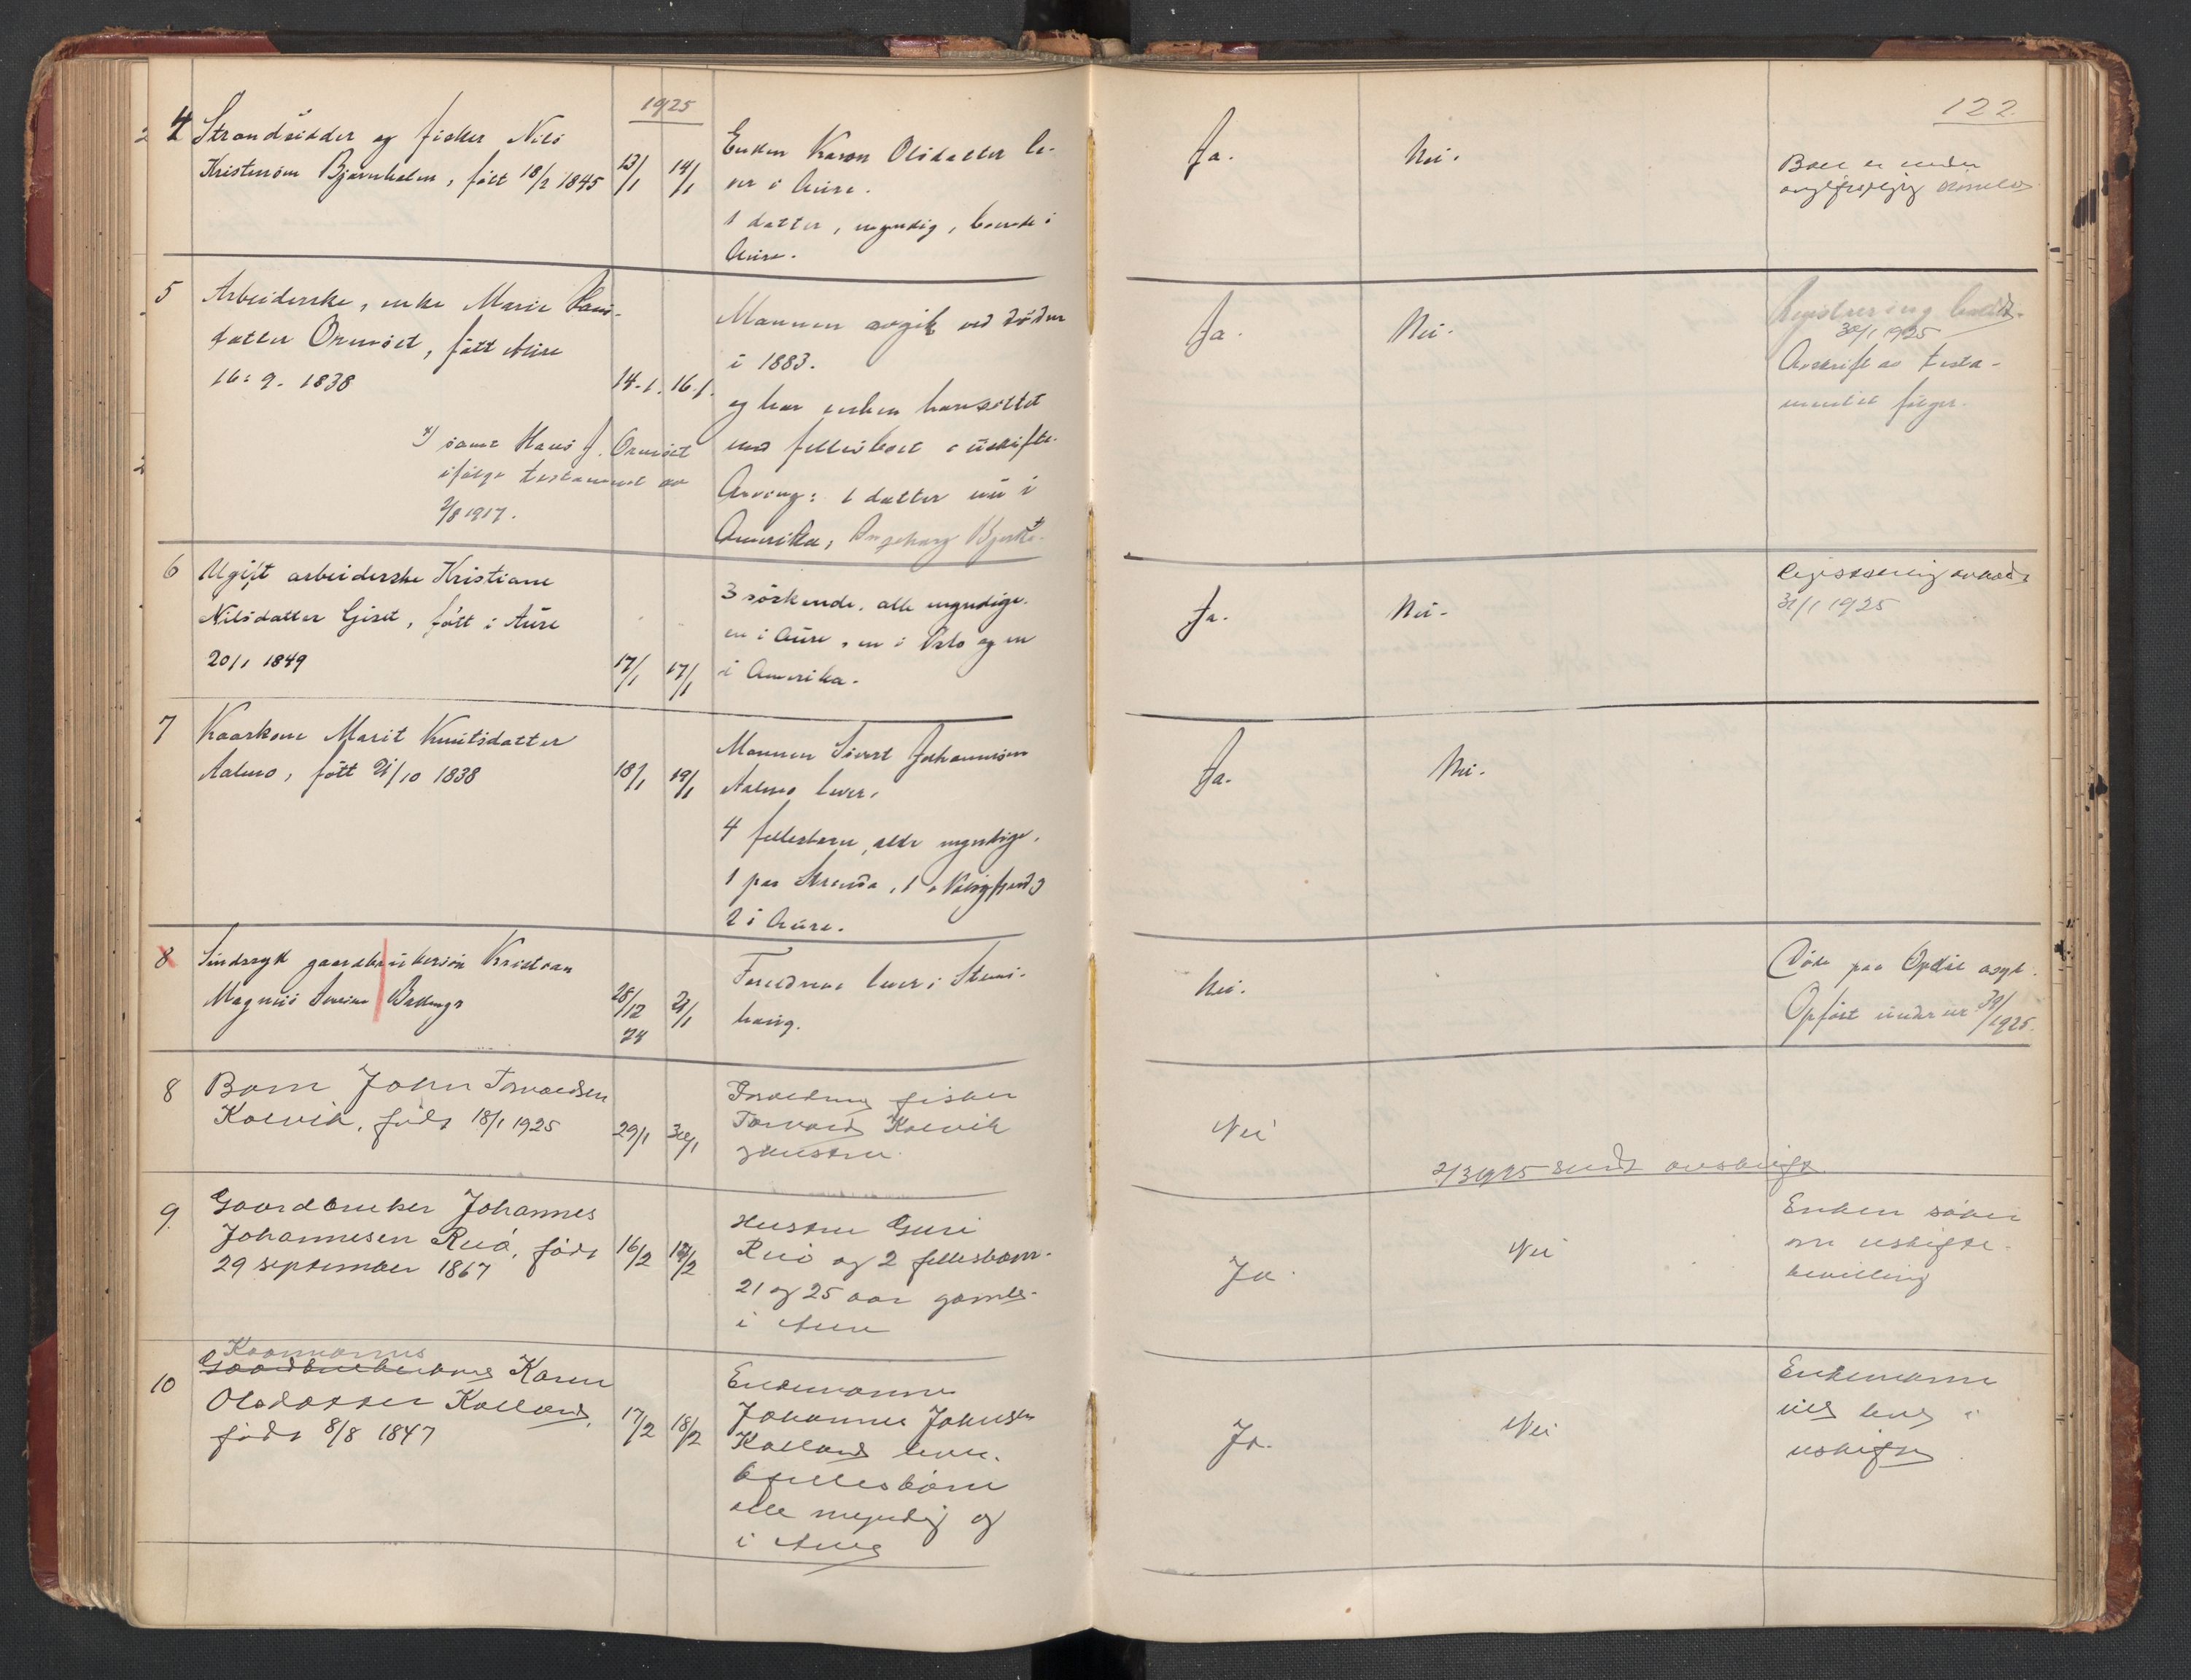 1925
122
4 Strandsidder og fisker Nils
Kristensøn Bjørnholm, født 18/2 1845
13/1 14/1
Enken Karen Olsdatter le-
ver i Aure.
1 datter, myndig, boende i
Aure.
Ja. Nei.
Boet er under
5 Arbeiderske, enke Marie Hans-
datter Ormset, født Aure
16. 9. 1838
14.1. 16.1.
samt Hans J. Ormset
ifølge testament av
2/8 1917.
Mannen avgik ved døden
i 1883.
og har enken hensittet
med fellesboet i uskifte.
Arving: 1 datter nu i
Amerika, Ingeborg
Ja. Nei.
Registrering
30/1 1925
Avskrift av testa-
mentet følger.
6 Ugift arbeiderske Kristiane
Nilsdatter Giset, født i Aure
20/1 1849
17/1 17/1
3 søskende, alle myndige.
en i Aure, en i Oslo og en
i Amerika.
Ja. Nei.
Registrering avholdt
31/1 1925
7 Kaarkone Marit Knutsdatter
Aalmo, født 21/10 1838
18/1 19/1
Mannen Sivert Johannessøn
Aalmo lever.
4 fellesbarn, alle myndige.
1 paa Strinda, 1 i
2 i Aure.
Ja. Nei.
8 Sindssyk gaardbrukersøn Kristian
Magnus
28/12 21/1
24
Forældrene lever i Stems-
haug.
Nei.
Døde paa Opdøl asyl.
Opført under nr 30/1925.
8 Barn John Torvaldsen
Kolvik, født 18/1 1925
29/1 30/1
Forældrene fisker
Torvald Kolvik
og hustru.
Nei
2/3 1925 sendt avskrift
9. Gaardbruker Johannes
Johannesen Ruø, født
29 september 1867
16/2 18/2
Hustru Guri
Ruø og 2 fellesbarn.
21 og 25 aar gamle.
i Aure
Ja. Nei
Enken søker
om uskifte-
bevilling
10 Kaarmanns
Gaardbrukerkone Karen
Olsdatter Kalland,
født 8/8 1847
17/2 18/2
Enkemannen
Johannes Johnsen
Kalland lever.
6 fellesbørn
alle myndig og
i Aure
Ja. Nei
Enkemannen
vil leve i
uskifte